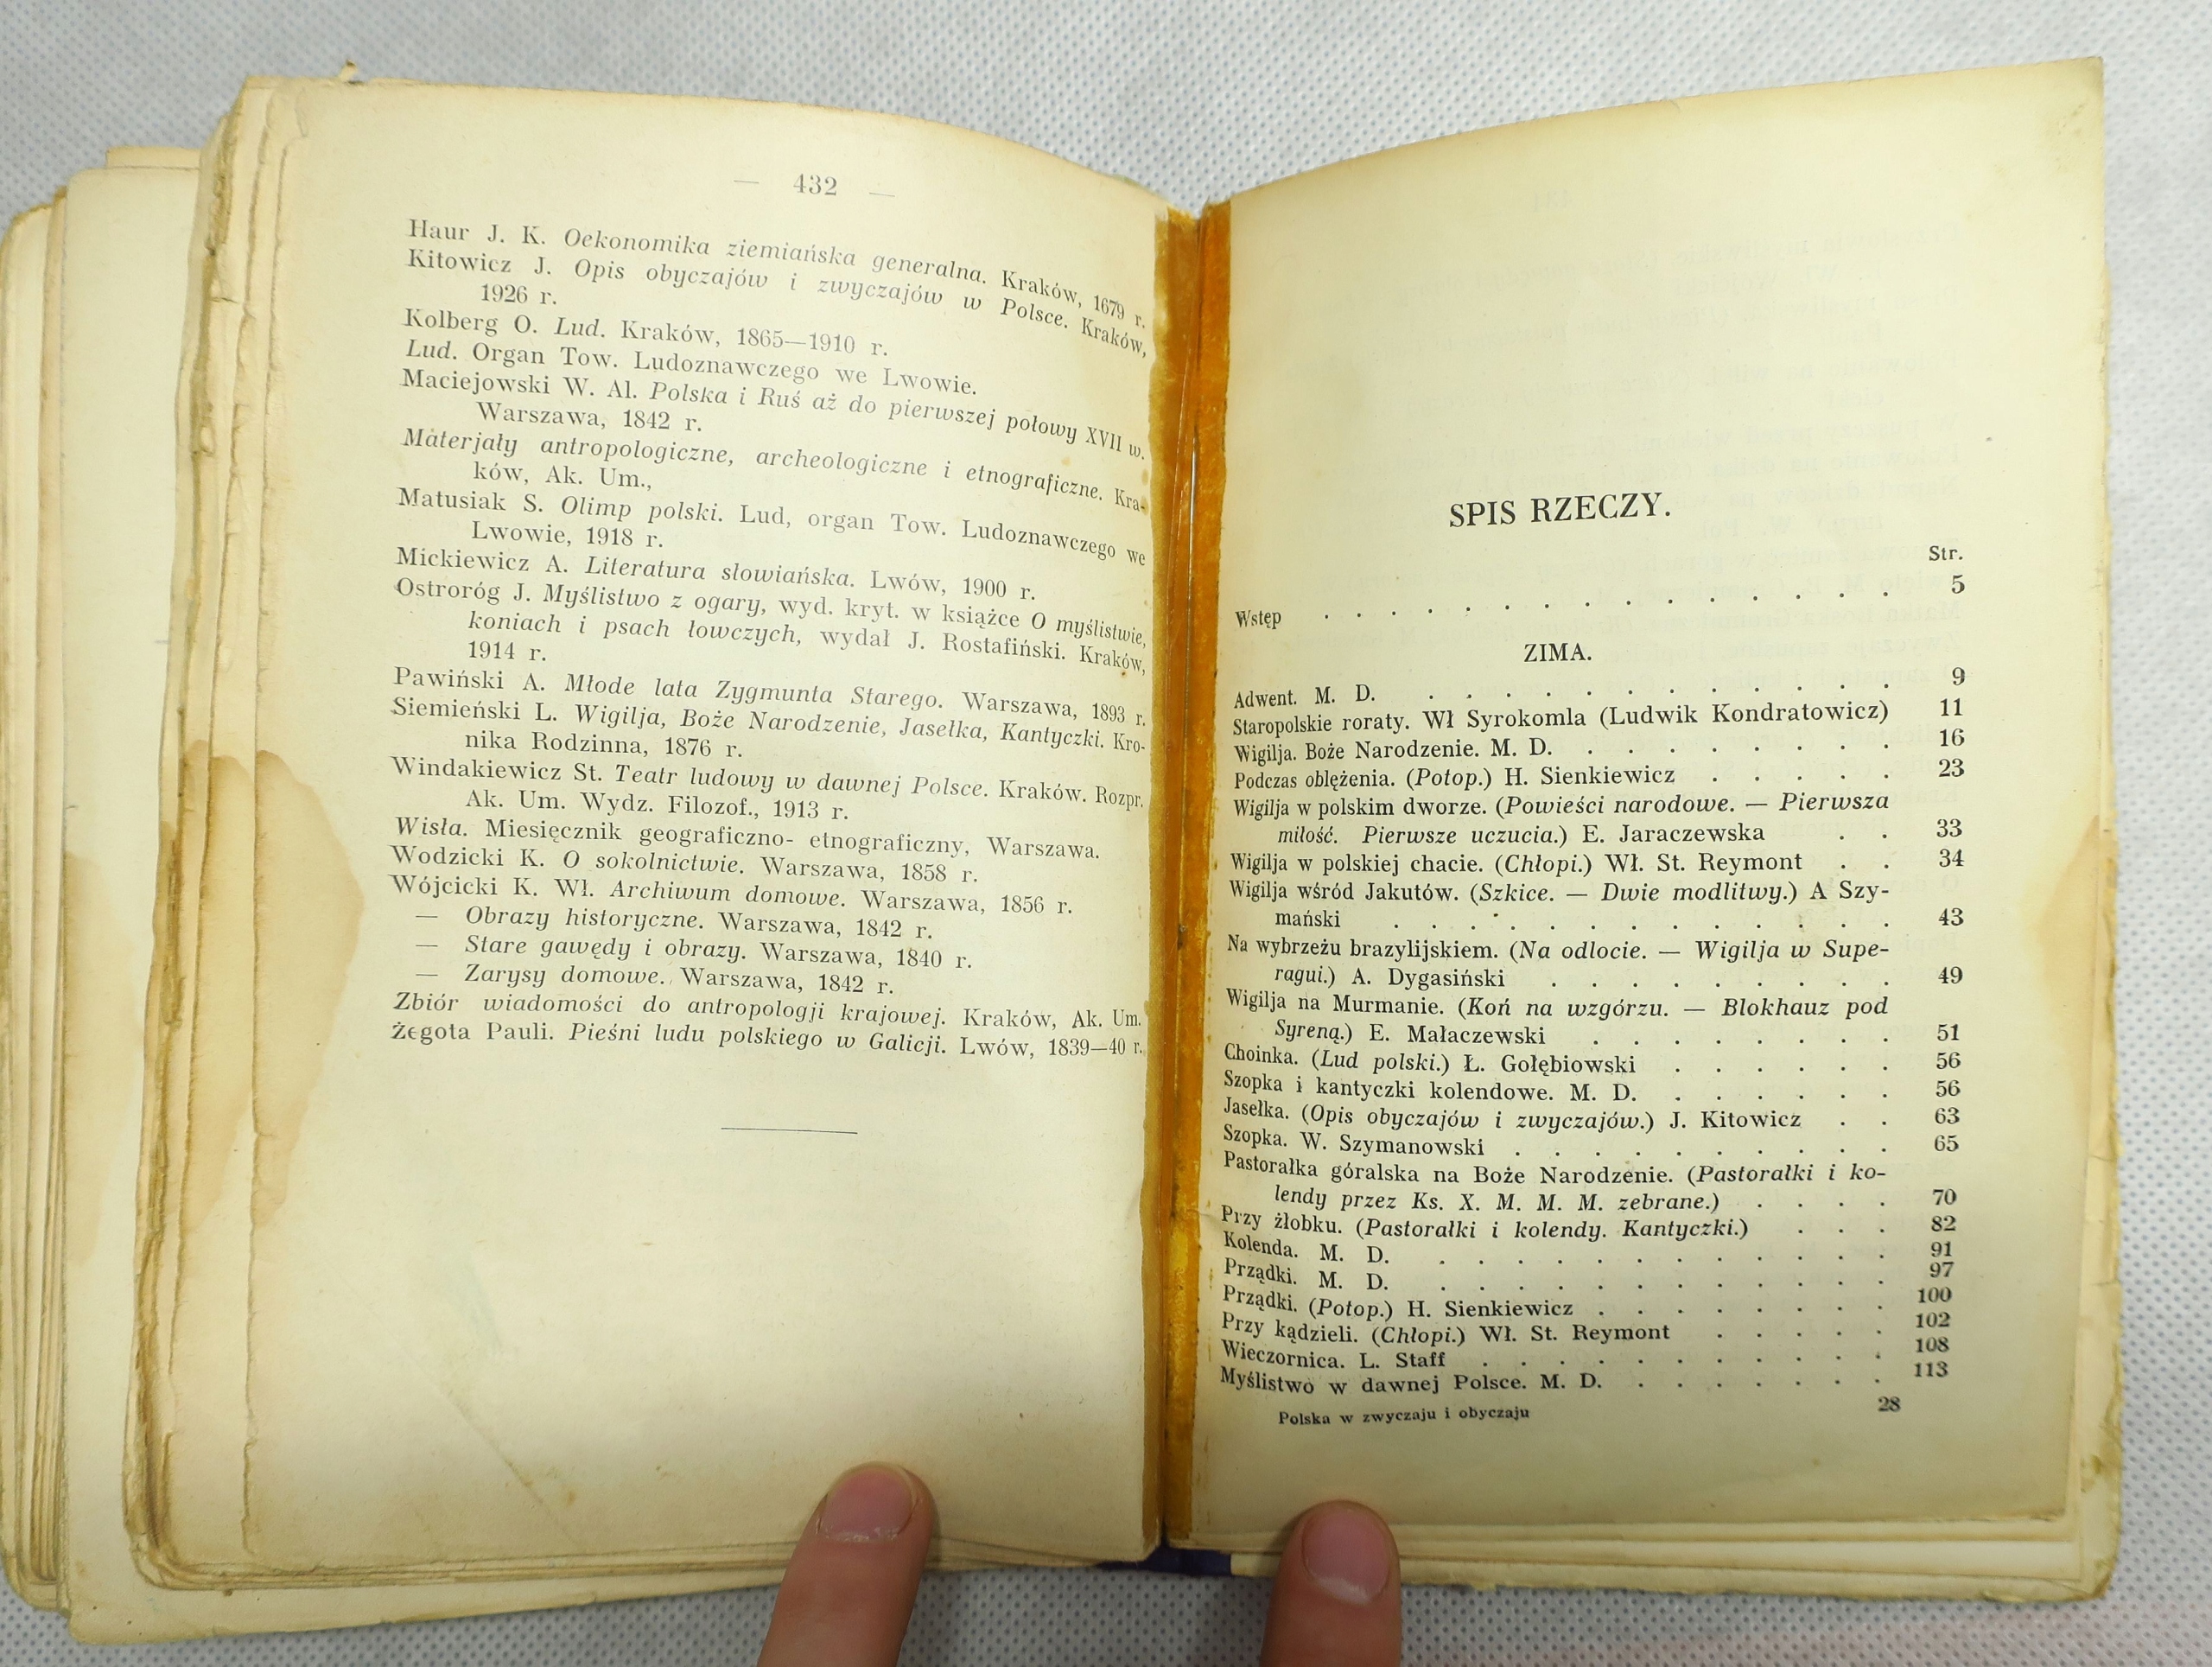 — 432 —
Haur J. K. Oekonomika ziemiańska generalna. Kraków, 1679 r.
Kitowicz J. Opis obyczajów i zwyczajów w Polsce. Kraków,
1926 r.
Kolberg O. Lud. Kraków, 1865—1910 r.
Lud. Organ Tow. Ludoznawczego we Lwowie.
Maciejowski W. Al. Polska i Ruś aż do pierwszej połowy XVII w.
Warszawa, 1842 r.
Materjały antropologiczne, archeologiczne i etnograficzne. Kra-
ków, Ak. Um.,
Matusiak S. Olimp polski. Lud, organ Tow. Ludoznawczego we
Lwowie, 1918 r.
Mickiewicz A. Literatura słowiańska. Lwów, 1900 r.
Ostroróg J. Myślistwo z ogary, wyd. kryt. w książce O myślistwie,
koniach i psach łowczych, wydał J. Rostafiński. Kraków,
1914 r.
Pawiński A. Młode lata Zygmunta Starego. Warszawa, 1893 r.
Siemieński L. Wigilja, Boże Narodzenie, Jasełka, Kantyczki. Kro-
nika Rodzinna, 1876 r.
Windakiewicz St. Teatr ludowy w dawnej Polsce. Kraków. Rozpr.
Ak. Um. Wydz. Filozof., 1913 r.
Wisła. Miesięcznik geograficzno- etnograficzny, Warszawa.
Wodzicki K. O sokolnictwie. Warszawa, 1858 r.
Wójcicki K. Wł. Archiwum domowe. Warszawa, 1856 r.
— Obrazy historyczne. Warszawa, 1842 r.
— Stare gawędy i obrazy. Warszawa, 1840 r.
— Zarysy domowe. Warszawa, 1842 r.
Zbiór wiadomości do antropologji krajowej. Kraków, Ak. Um.
Żegota Pauli. Pieśni ludu polskiego w Galicji. Lwów, 1839—40 r.
SPIS RZECZY.
Str.
Wstęp . . . . . . . . . . . . . . . 5
ZIMA.
Adwent. M. D. . . . . . . . . . . . . 9
Staropolskie roraty. Wł Syrokomla (Ludwik Kondratowicz) 11
Wigilja. Boże Narodzenie. M. D. . . . . . . . . 16
Podczas oblężenia. (Potop.) H. Sienkiewicz . . . . . 23
Wigilja w polskim dworze. (Powieści narodowe. — Pierwsza
miłość. Pierwsze uczucia.) E. Jaraczewska . . 33
Wigilja w polskiej chacie. (Chłopi.) Wł. St. Reymont . . 34
Wigilja wśród Jakutów. (Szkice. — Dwie modlitwy.) A Szy-
mański . . . . . . . . . . . . . 43
Na wybrzeżu brazylijskiem. (Na odlocie. — Wigilja w Supe-
ragui.) A. Dygasiński . . . . . . . . . 49
Wigilja na Murmanie. (Koń na wzgórzu. — Blokhauz pod
Syreną.) E. Małaczewski . . . . . . . . 51
Choinka. (Lud polski.) Ł. Gołębiowski . . . . . . 56
Szopka i kantyczki kolendowe. M. D. . . . . . . 56
Jasełka. (Opis obyczajów i zwyczajów.) J. Kitowicz . . 63
Szopka. W. Szymanowski . . . . . . . . . . 65
Pastorałka góralska na Boże Narodzenie. (Pastorałki i ko-
lendy przez Ks. X. M. M. M. zebrane.) . . . . 70
Przy żłobku. (Pastorałki i kolendy. Kantyczki.) . . . 82
Kolenda. M. D. . . . . . . . . . . . . 91
Prządki. M. D. . . . . . . . . . . . . 97
Prządki. (Potop.) H. Sienkiewicz . . . . . . . . 100
Przy kądzieli. (Chłopi.) Wł. St. Reymont . . . . . 102
Wieczornica. L. Staff . . . . . . . . . . . 108
Myślistwo w dawnej Polsce. M. D. . . . . . . . 113
Polska w zwyczaju i obyczaju 28